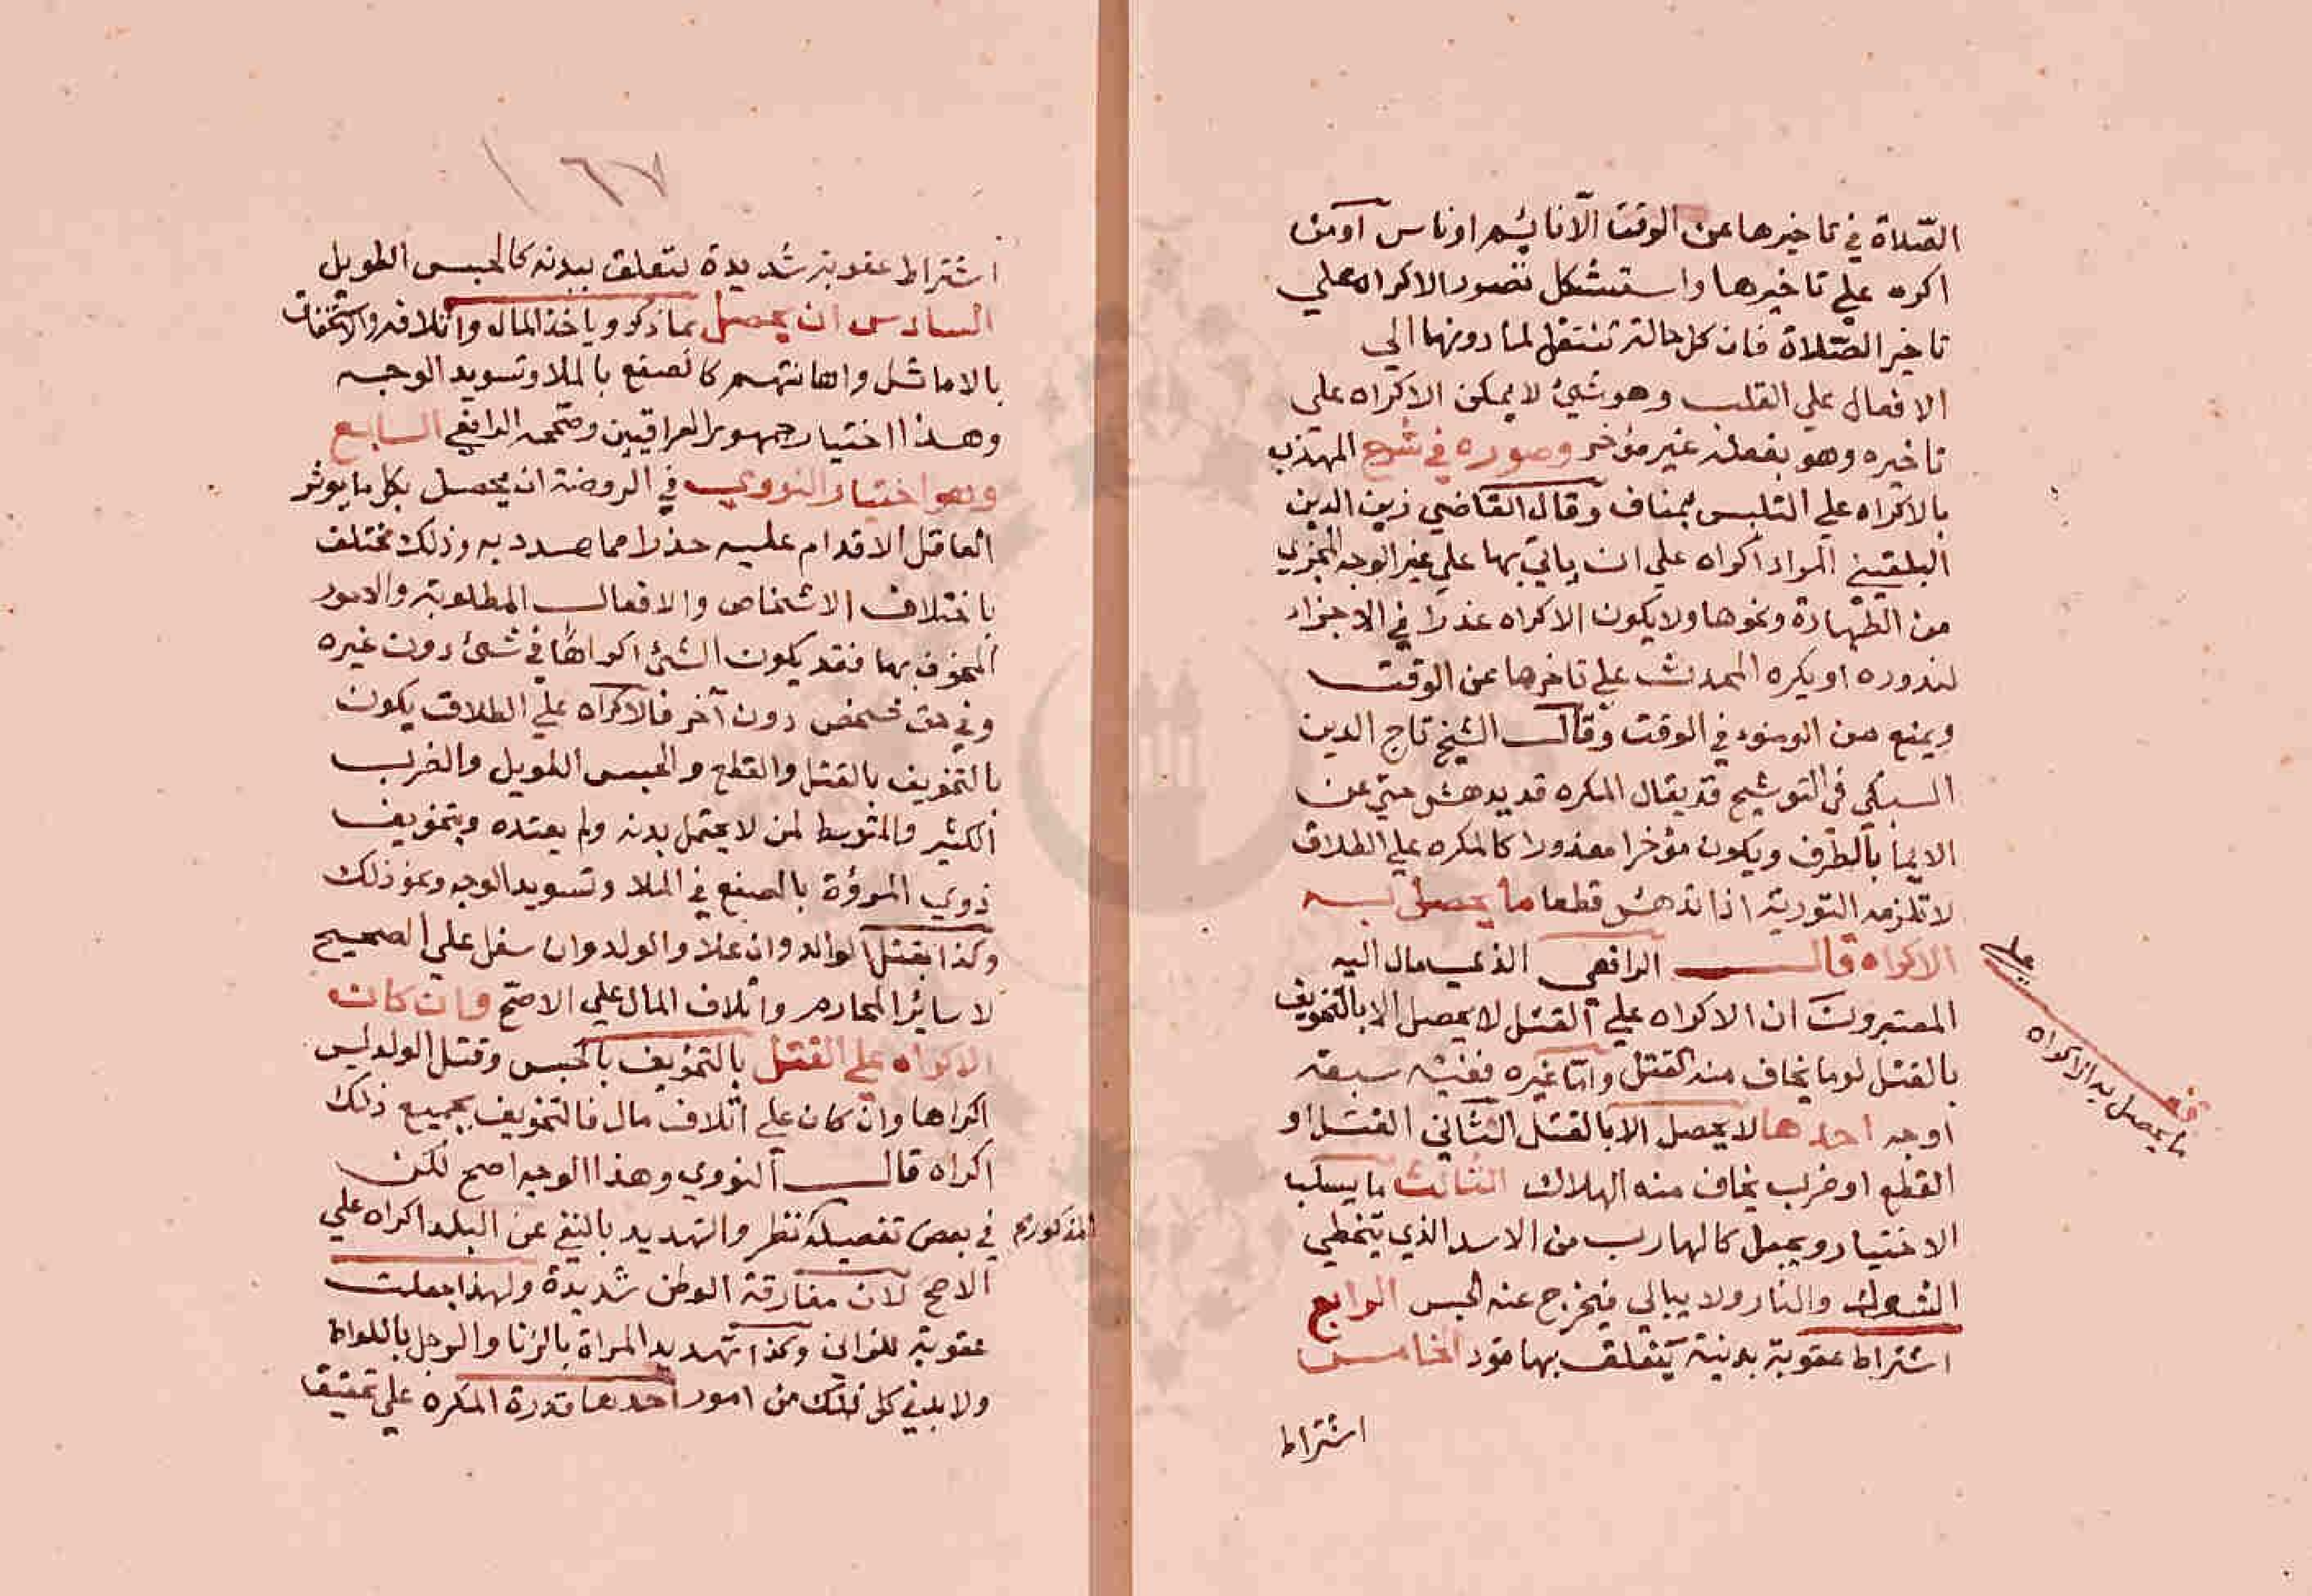 الصّلاة في تاخيرها عن الوقت الّا نائم او ناس او من
اكره علي تاخيرها واستشكل تصور الاكراه علي
تاخير الصّلاة فان كل حالة تنتقل لما دونها الي
الافعال علي القلب وهو شيئ لا يمكن الاكراه علي
تاخيره وهو بفعله غير مؤخر وصوره في شرح المهذب
بالاكراه علي التلبس بمناف وقال القاضي زين الدين
البلقيني المراد اكراه علي ان ياتي بها علي غير الوجه المجزي
من الطّهارة ونحوها ولا يكون الاكراه عذرا في الاجزاء
لندوره او يكره المحدث علي تاخرها عن الوقت
ويمنع من الوضوء في الوقت وقال الشيخ تاج الدين
السبكي في التوشيح قد يقال المكره قد يدهش حتي عن
الايما بالطرف ويكون مؤخرا معذورا كالمكره علي الطلاق
لا تلزمه التورية اذا اندهش قطعا ما يحصل به
الاكراه قال الرافعي الذي مال اليه
المعتبرون ان الاكراه علي القتل لا يحصل الا بالتخويف
بالقتل او ما يخاف منه القتل وامّا غيره ففيه سبعة
اوجه احدها لا يحصل الا بالقتل الثاني القتل او
القطع او ضرب يخاف منه الهلاك الثالث ما يسلب
الاختيار ويجعل كالهارب من الاسد الذي يتخطي
الشوك والنار ولا يبالي فيخرج عنه الحبس الرابع
اشتراط عقوبة بدنية يتعلق بها قود الخامس
اشتراط
ما يحصل به الاكراه
١٦٧
اشتراط عقوبة شديدة تتعلق ببدنه كالحبس الطويل
السادس ان يحصل بما ذكر وياخذ المال واتلافه والاستخفاف
بالاماثل واهانتهم كالصفع بالملا وتسويد الوجه
وهذا اختيار جمهور العراقيين وصححه الرافعي السابع
وهو اختيار النووي في الروضة انه يحصل بكل ما يوثر
العاقل الاقدام عليه حذرا مما هدد به وذلك مختلف
باختلاف الاشخاص والافعال المطلوبة والامور
المخوف بها فقد يكون الشئ اكراها في شئ دون غيره
وفي حق شخص دون آخر فالاكراه علي الطلاق يكون
بالتخويف بالقتل والقطع والحبس الطويل والضرب
الكثير والمتوسط لمن لا يحتمل بدنه ولم يعتده وبتخويف
ذوي المروؤة بالصفع في الملا وتسويد الوجه ونحو ذلك
وكذا بقتل الوالد وان علا والولد وان سفل علي الصحيح
لا سائر المحارم واتلاف المال علي الاصح وان كان
الاكراه علي القتل بالتخويف بالحبس وقتل الولد ليس
اكراها وان كان علي اتلاف مال فالتخويف بجميع ذلك
اكراه قال النووي وهذا الوجه اصح لكن
في بعض تفصيله نظر والتهديد بالنفي عن البلد اكراه علي
المذكورة
الاصح لان مفارقة الوطن شديدة ولهذا جعلت
عقوبة للزاني وكذا تهديد المراة بالزنا والرجل باللواط
ولا بد في كل ذلك من امور احدها قدرة المكره علي تحقيق